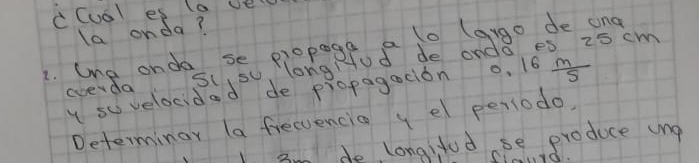 ¿Cuál es la
la onda?
2. Una onda se propaga a lo largo de una
cuerda si su longitud de onda es 25 cm
y su velocidad de propagación 0.16 m/s
Determinar la frecuencia y el periodo.
3m de longitud se produce una